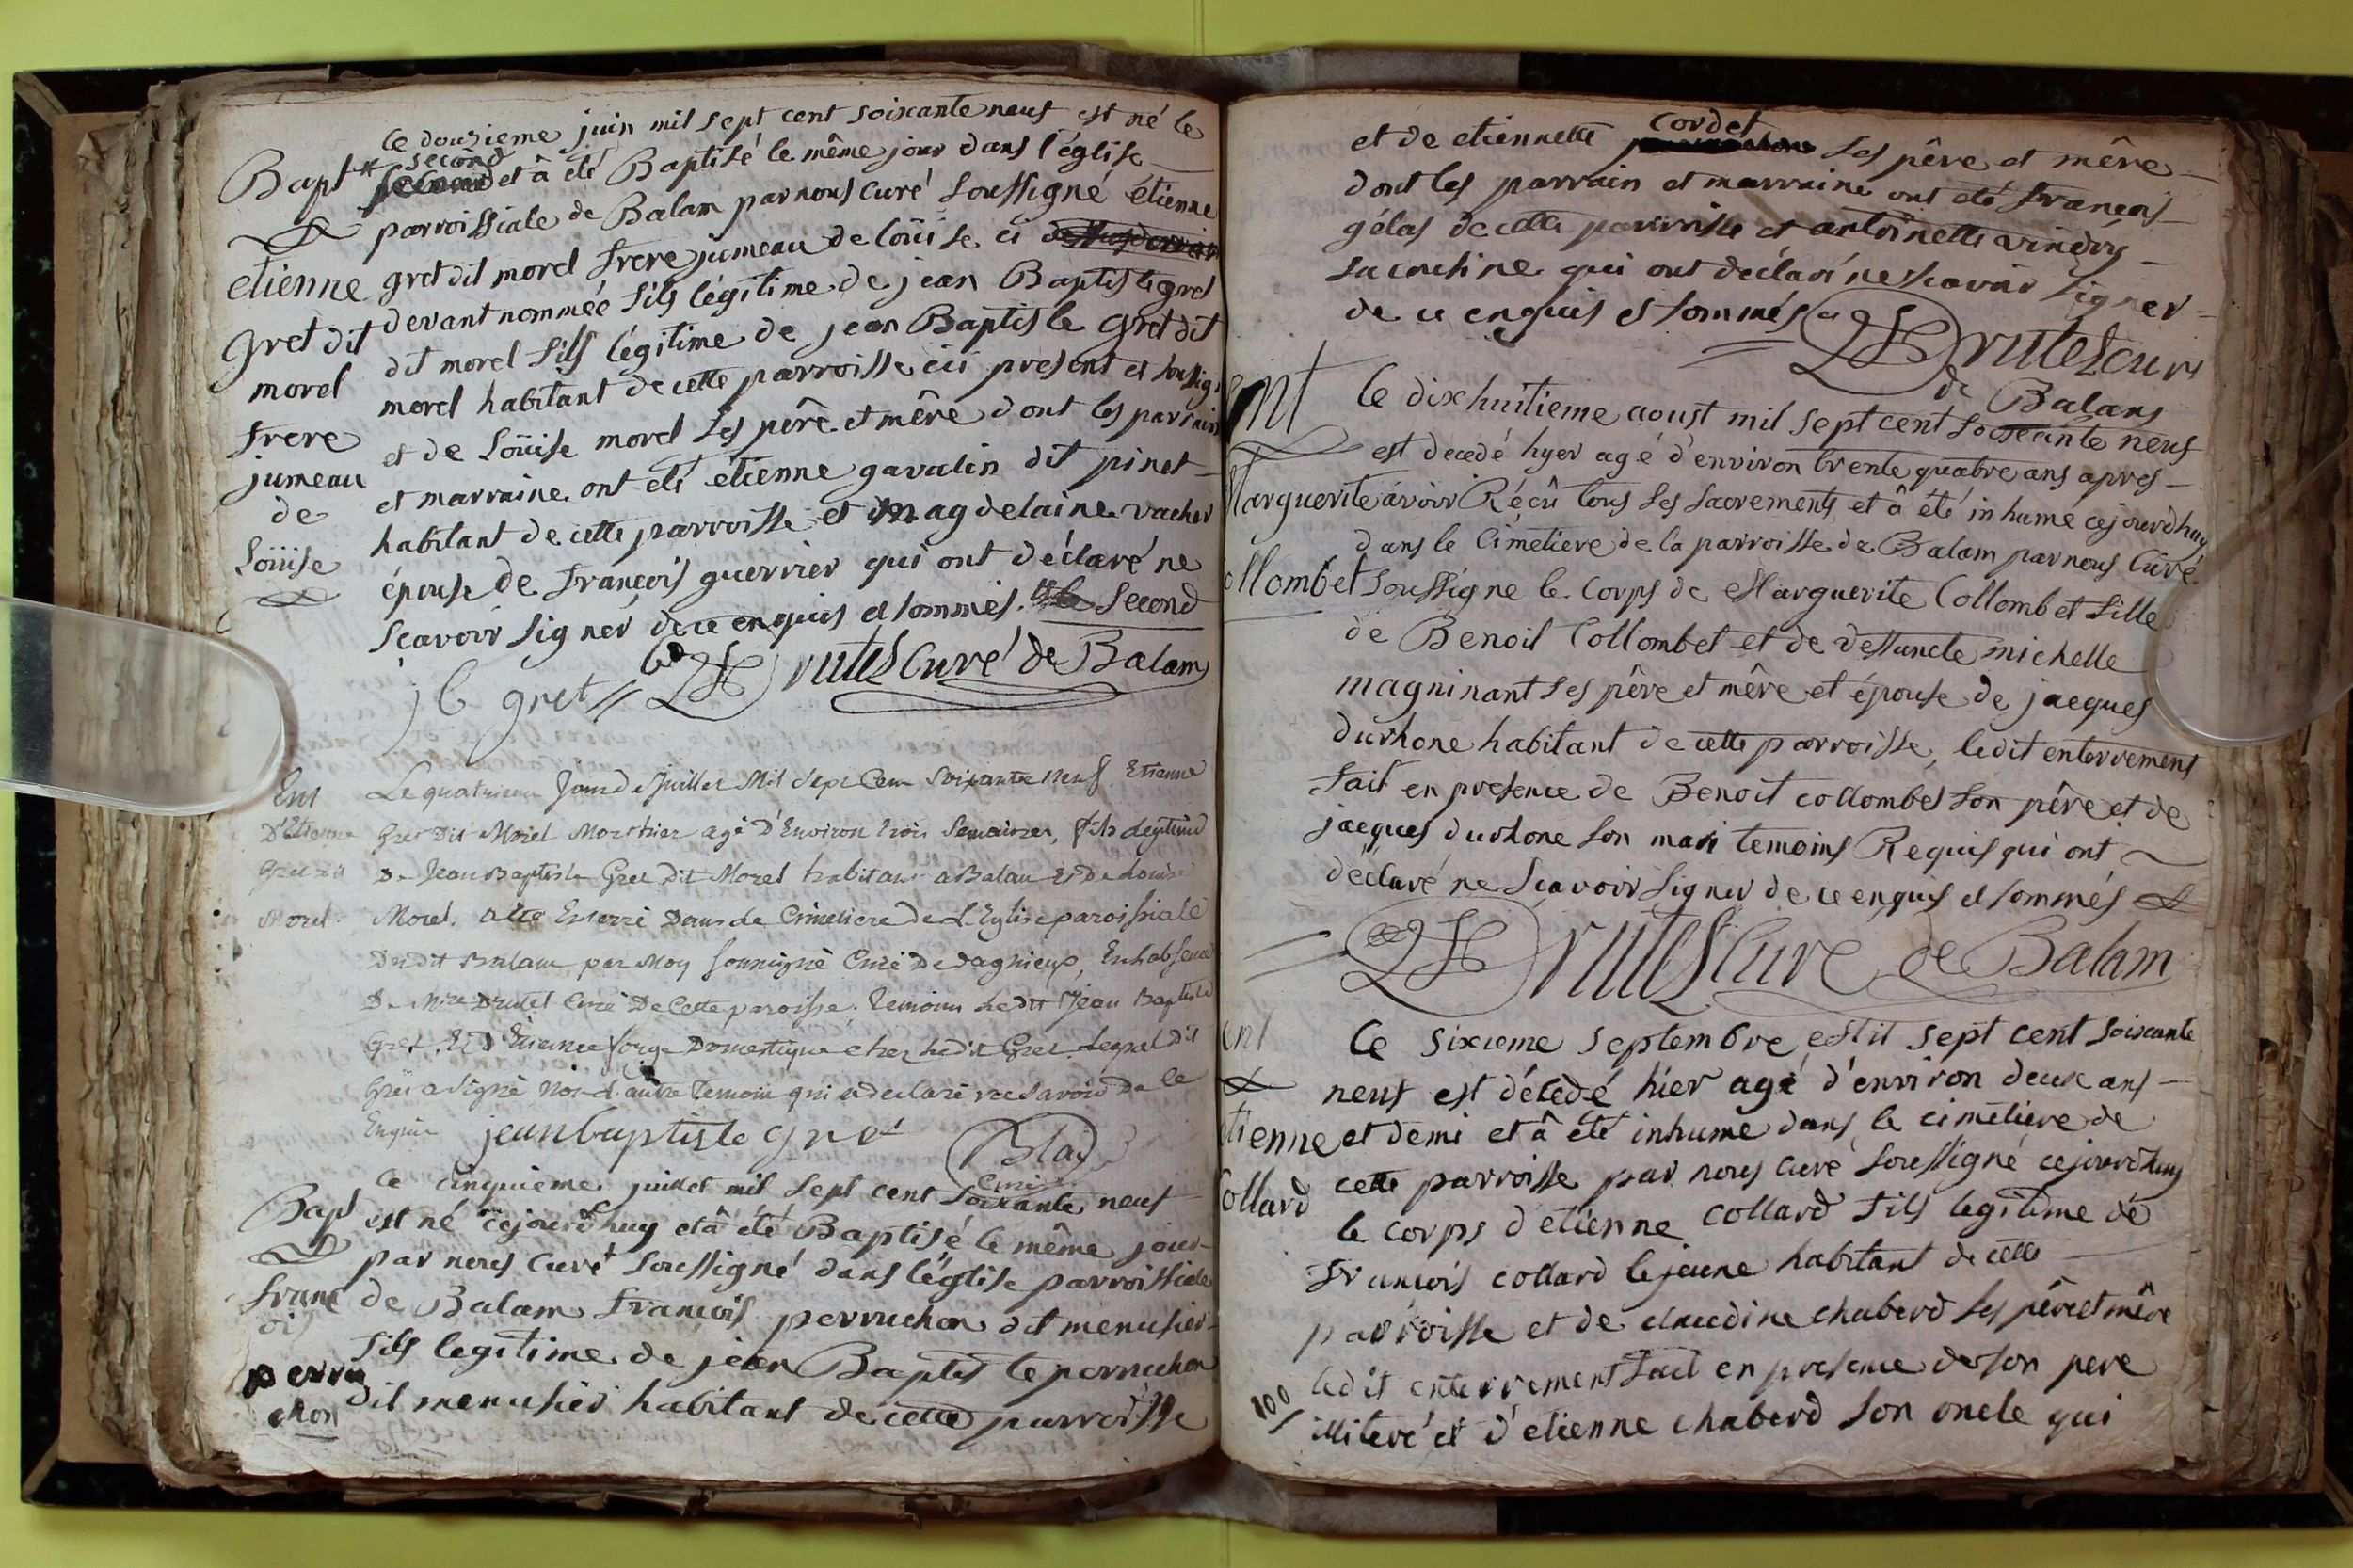 le douzieme juin mil sept cent soixante neuf est né le
Bapt * second et â été Baptisé le même jour dans l'église
parroissiale de Balam par nous curé soussigné étienne
etienne gret dit morel frere jumeau de loüise ci
gret dit devant nommée fils légitime de jean Baptiste gret
morel dit morel fils légitime de jean Baptiste gret dit
morel habitant de cette parroisse ici present et soussigné
frere et de loüise morel ses pêre et mêre dont les parrain
jumeau et marraine ont été étienne gavalin dit pinet
de habitant de cette parroisse et magdelaine vacher
Loüise épouse de françois guerrier qui ont déclaré ne
scavoir signer de ce enquis et sommés. * le second
j b gret Drutel Curé de Balam
Ent Le quatrieme Jour de Juillet Mil Sept Cent Soixante neuf Etienne
D'Etienne Gret Dit Morel Mort hier agé d'Environ trois Semaines, fils legitime
Gret dit De Jean Baptiste Gret Dit Morel habitant a Balan Et De Louise
Morel Morel. a été Enterré Dans le Cimetiere de L'Eglise paroissiale
Dudit Balan par Moy soussigné Curé De Dagnieux, En l'absence
De Mre Drutel Curé De Cette paroisse. Temoins Ledit Jean Baptiste
Gret, Et Etienne forge Domestique chez Ledit Gret. Lequel dit
Gret a Signé Non L'autre temoin qui a declaré ne savoir De Ce
Enquis jean baptiste gret Blay
Curé
Ce cinquieme juillet mil sept cent soixante neuf
Bapt est né cejourdhuy et â été Baptisé le même jour
par nous curé soussigné dans l'église parroissiale
franc de Balam françois perruchon dit menusier
ois fils legitime de jean Baptiste perruchon
perru dit menusier habitant de cette parroisse
chon
et de etiennette cordet ses pêre et mêre
dont les parrain et marraine ont été françois
gélas de cette parroisse et antoinette vindry
sa cousine qui ont declaré ne scavoir signer
de ce enquis et sommés Drutel curé
de Balam
Ent Ce dix huitieme aoust mil sept cent soixante neuf
est decedé hyer agé d'environ trente quatre ans apres
Marguerite avoir Récû tous ses sacrements et â été inhumé cejourdhuy
dans le Cimetiere de la parroisse de Balam par nous Curé
Collombet soussigné le corps de Marguerite Collombet fille
de Benoit Collombet et de deffuncte michelle
magninant ses pêre et mêre et épouse de jacques
durhone habitant de cette parroisse, ledit enterrement
fait en presence de Benoit collombet son pêre et de
jacques durhone son mari temoins Requis qui ont
déclaré ne scavoir signer de ce enquis et sommés
Drutel Curé de Balam
ent Ce sixieme septembre Mil sept cent soixante
neuf est décedé hier agé d'environ deux ans
etienne et demi et â été inhumé dans le cimetiere de
cette parroisse par nous curé soussigné cejourdhuy
Collard le corps d etienne collard fils legitime de
françois collard lejeune habitant de cette
parroisse et de claudine chaberd ses pêre et mêre
ledit enterrement fait en presence de son pere
100 illiteré et d'etienne chaberd son oncle qui